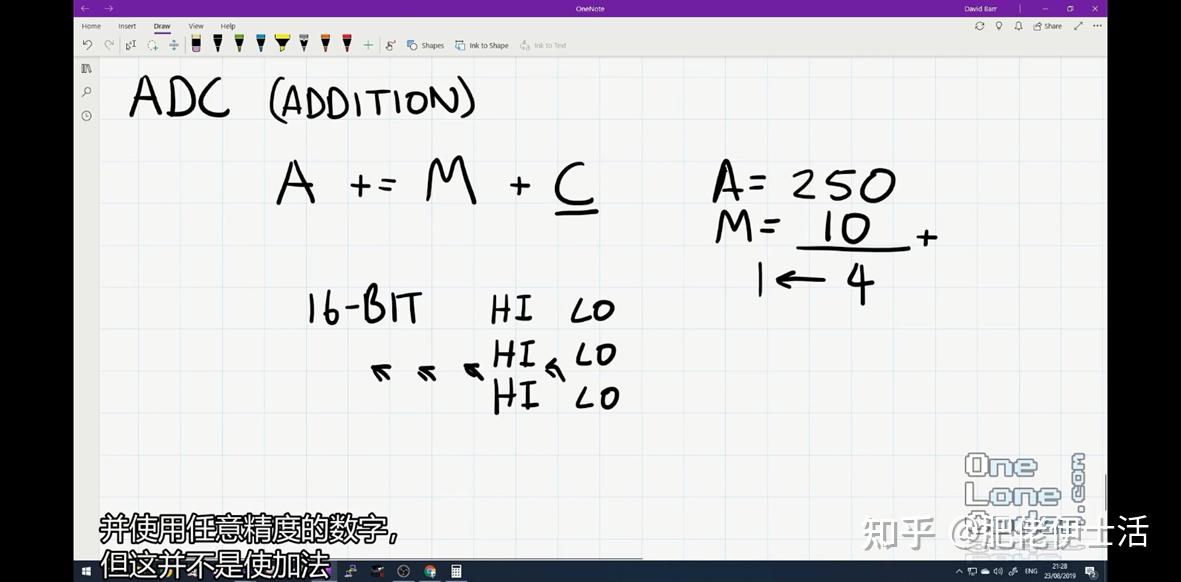 OneNote
David Barr
Home Insert Draw View Help
Share
Shapes
Ink to Shape
Ink to Text
ADC (ADDITION)
A += M + C
A= 250
M= 10 +
1 ← 4
16-BIT HI LO
HI LO
HI LO
One
Lone
Coder
.com
并使用任意精度的数字,
但这并不是使加法
知乎 @肥佬伊士活
ENG
21:28
23/08/2019